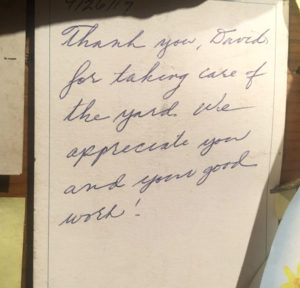 9/26/17
Thank you, David
for taking care of
the yard. We
appreciate you
and your good
work!